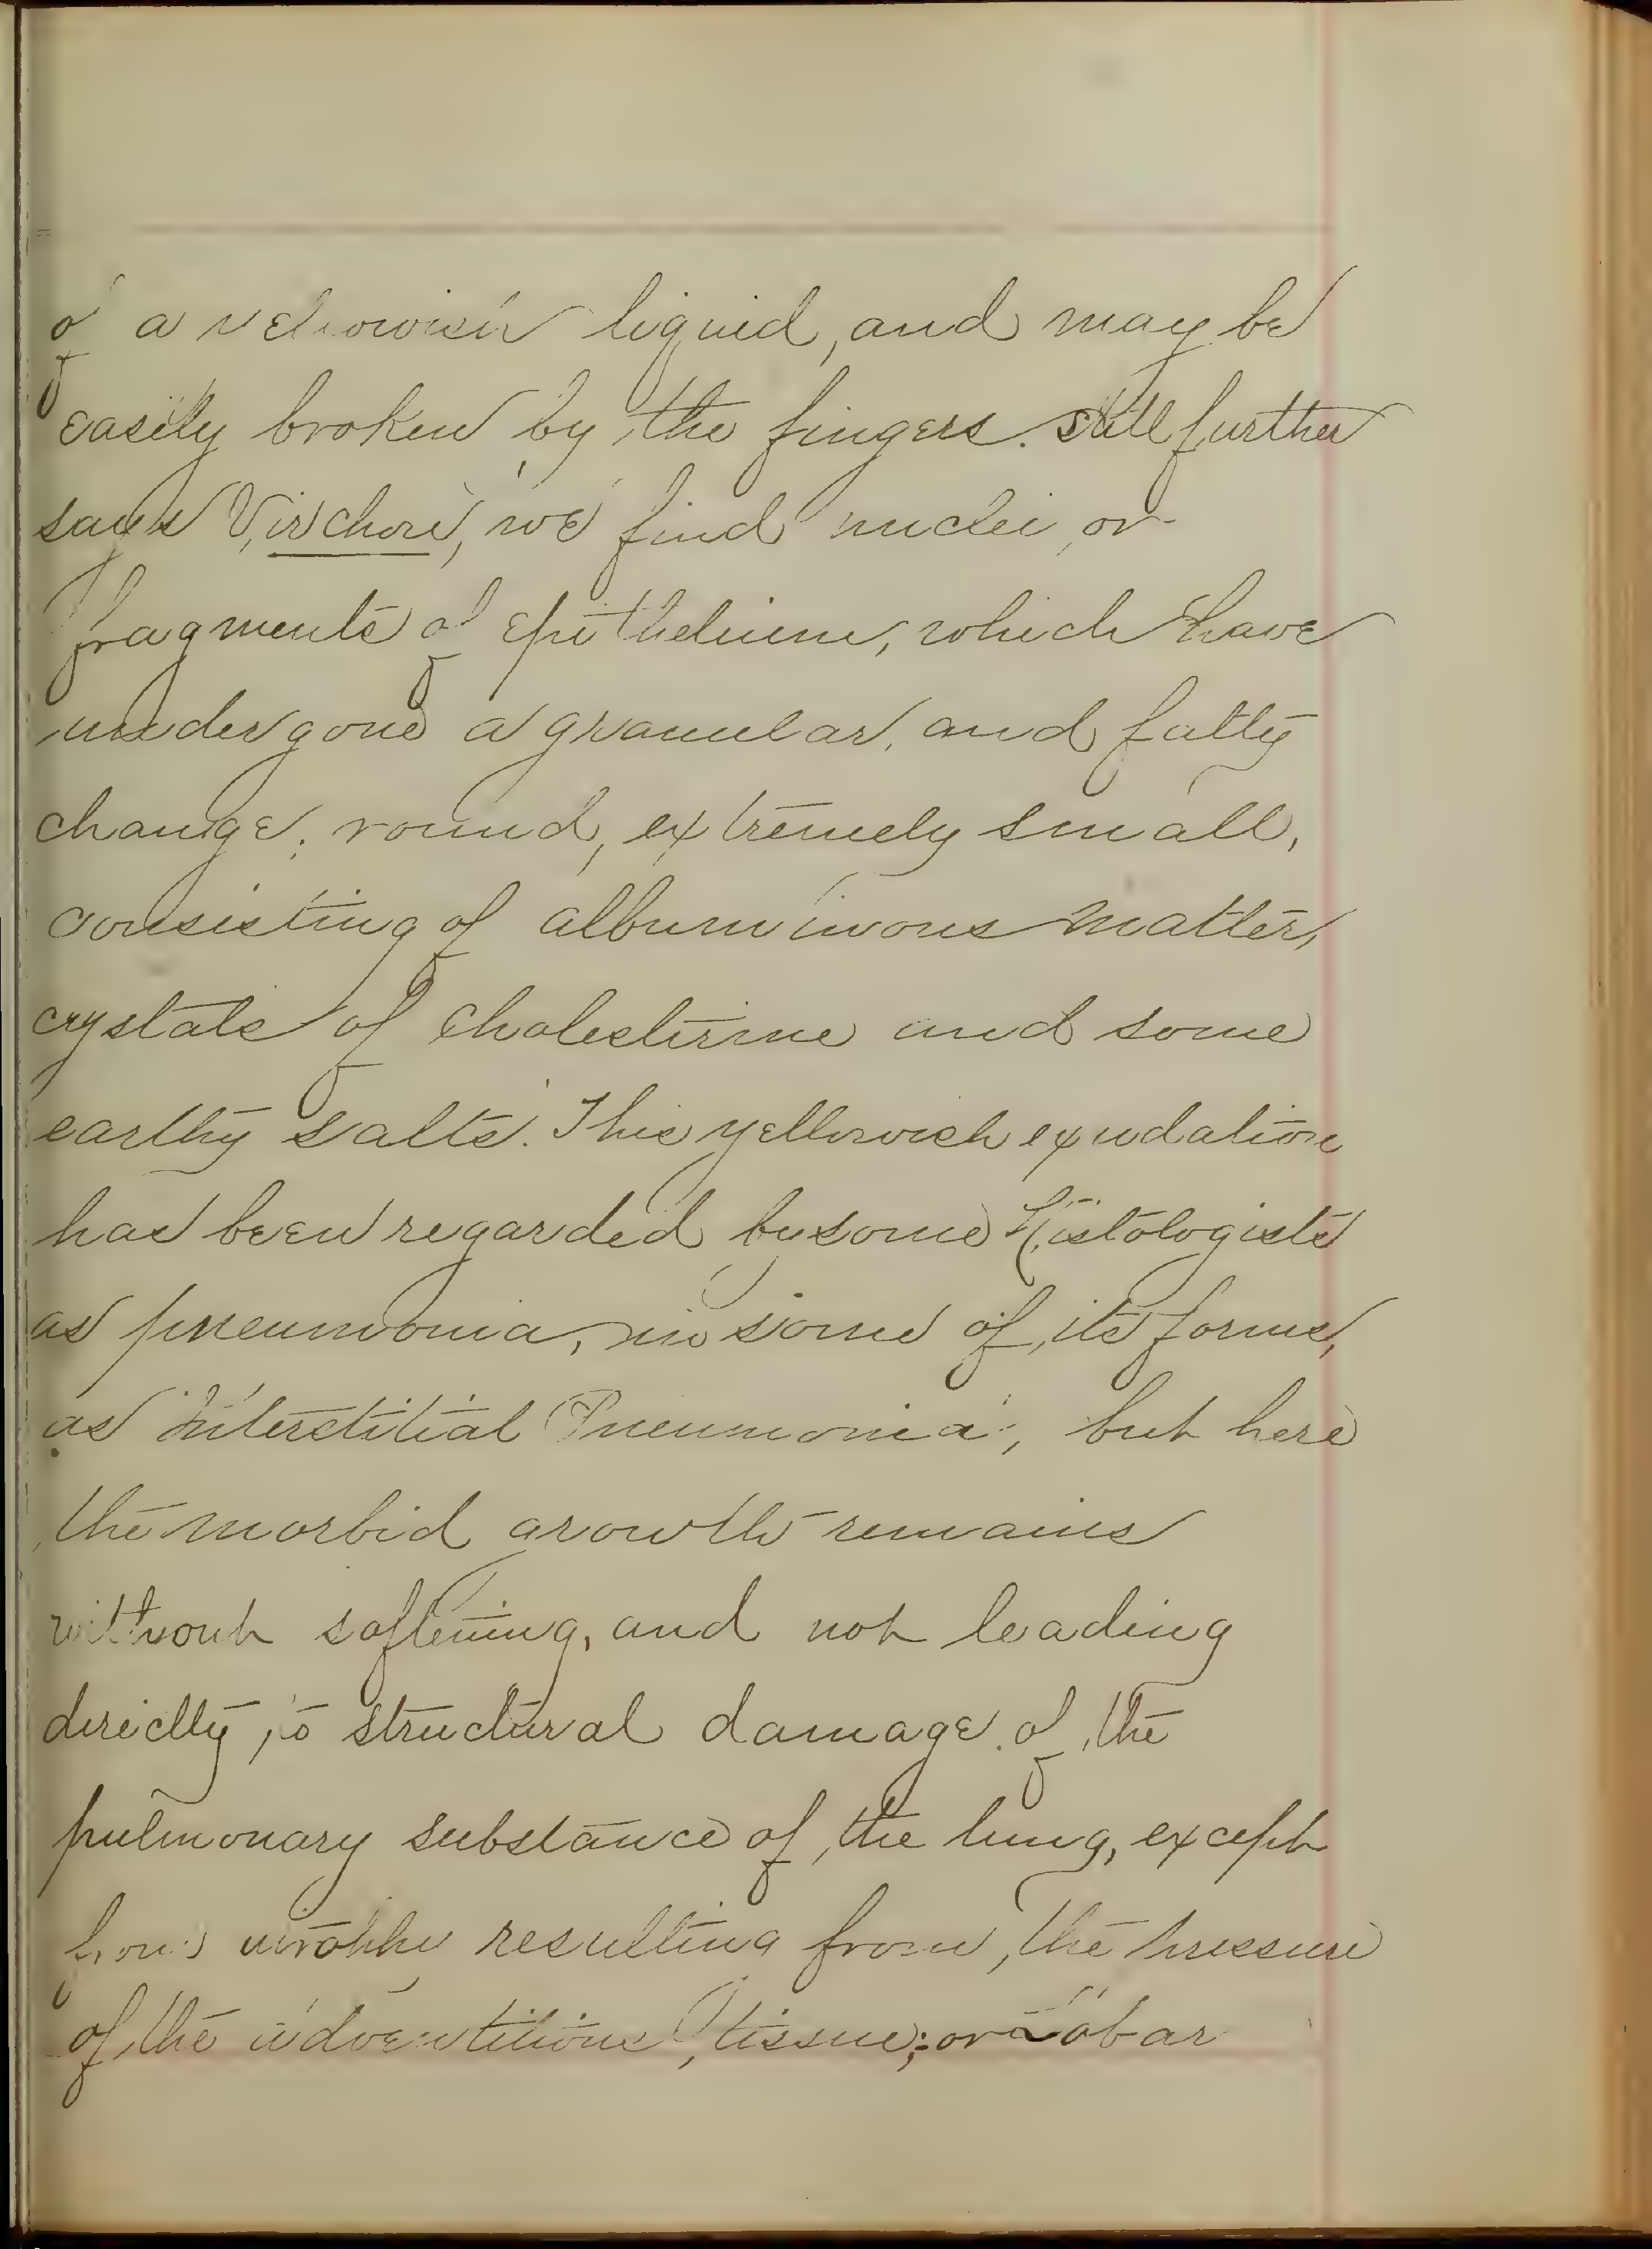 of a yellowish liquid, and may be
easily broken by the fingers. Still further
says Virchow, we find nuclei, or
fragments of epithelium, which have
undergone a granular, and fatty
change, round, extremely small,
consisting of albuminous matter,
crystals of Cholesterine and some
earthy salts. This yellowish exudation
has been regarded by some Histologists
as pneumonia, in some of its forms,
as Interstitial Pneumonia, but here
the morbid growth remains
without softening, and not leading
directly to structural damage of the
pulmonary substance of the lung, except
from atrophy resulting from, the pressure
of the adventitious, tissue; or Lobar